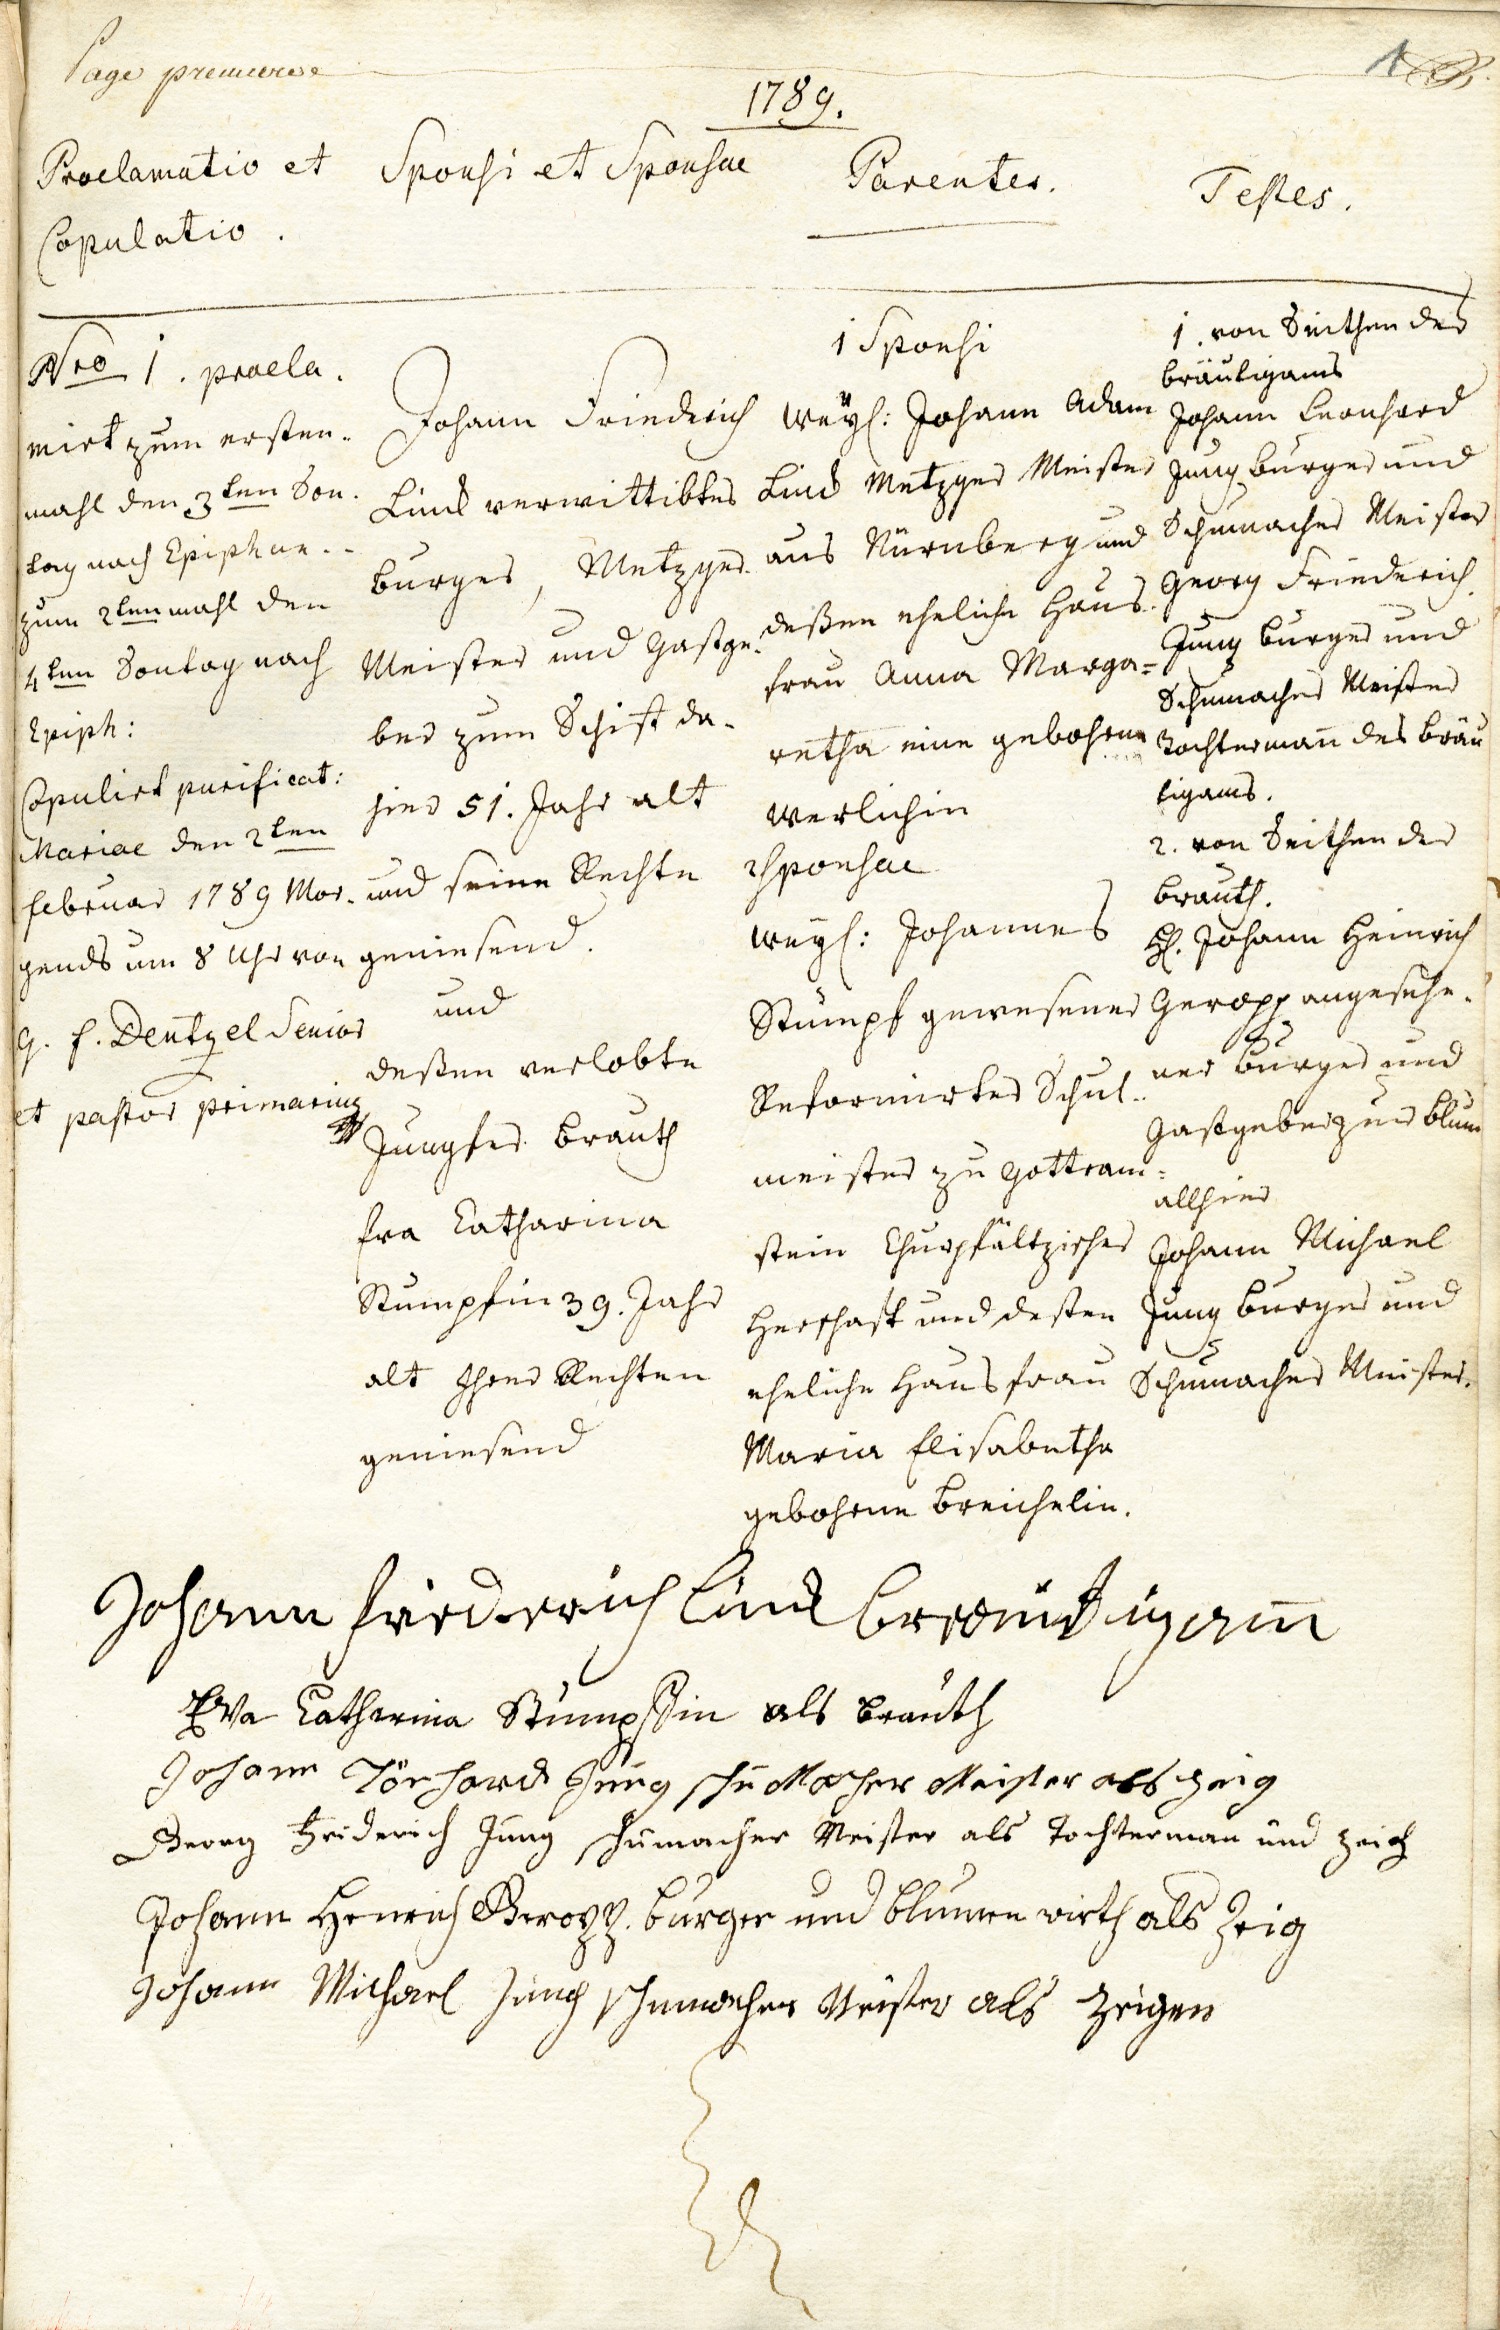 Page premiere
1
1789.
Proclamatio et
Copulatio.
Sponsi et Sponsae
Parentes.
Testes.
Nro 1. procla-
mirt zum ersten-
mahl den 3ten Son-
tag nach Epiphan.
zum 2ten mahl den
4ten Sontag nach
Epiph:
Copulirt purificat:
Mariae den 2ten
Februar 1789 Mor-
gends um 8 Uhr von
G. F. Dentzel Senior
et pastor primarius
Johann Friedrich
Linck verwittibter
burger, Metzger
Meister und Gastge-
ber zum Schif da-
hier 51. Jahr alt
und seine Rechte
geniesend.
und
deßen verlobte
Jungfer brauth
Eva Catharina
Stumpfin 39. Jahr
alt Ihrer Rechten
geniesend
1 Sponsi
weyl: Johann Adam
Linck Metzger Meister
aus Nürnberg und
deßen eheliche Haus-
frau Anna Marga-
retha eine gebohrne
Werlichin
2 Sponsae
weyl: Johannes
Stumpf gewesener
Reformirter Schul-
meister zu Gottram-
stein Churpfältzischer
Herschaft und desten
eheliche Hausfrau
Maria Elisabetha
gebohrne Breichelin.
1. von Seithen des
bräutigams
Johann Leonhard
Jung burger und
Schumacher Meister
Georg Friederich
Jung burger und
Schumacher Meister
Tochtermañ des bräu
tigams.
2. von Seithen der
brauth.
H. Johann Heinrich
Geropp angesehe-
ner burger und
Gastgeber zur Blum
allhier
Johann Michael
Jung burger und
Schumacher Meister.
Johann friederich Linck breutigam
Eva Catharina Stumpffin als brauth
Johann Lönhard Jung schu Macher Meister als zeig
Georg Friderich Jung schumacher Meister als Tochterman und zeich
Johann Henrich Geropp burger und blumen wirth als Zeig
Johann Michael Jung schumacher Meister als Zeigen